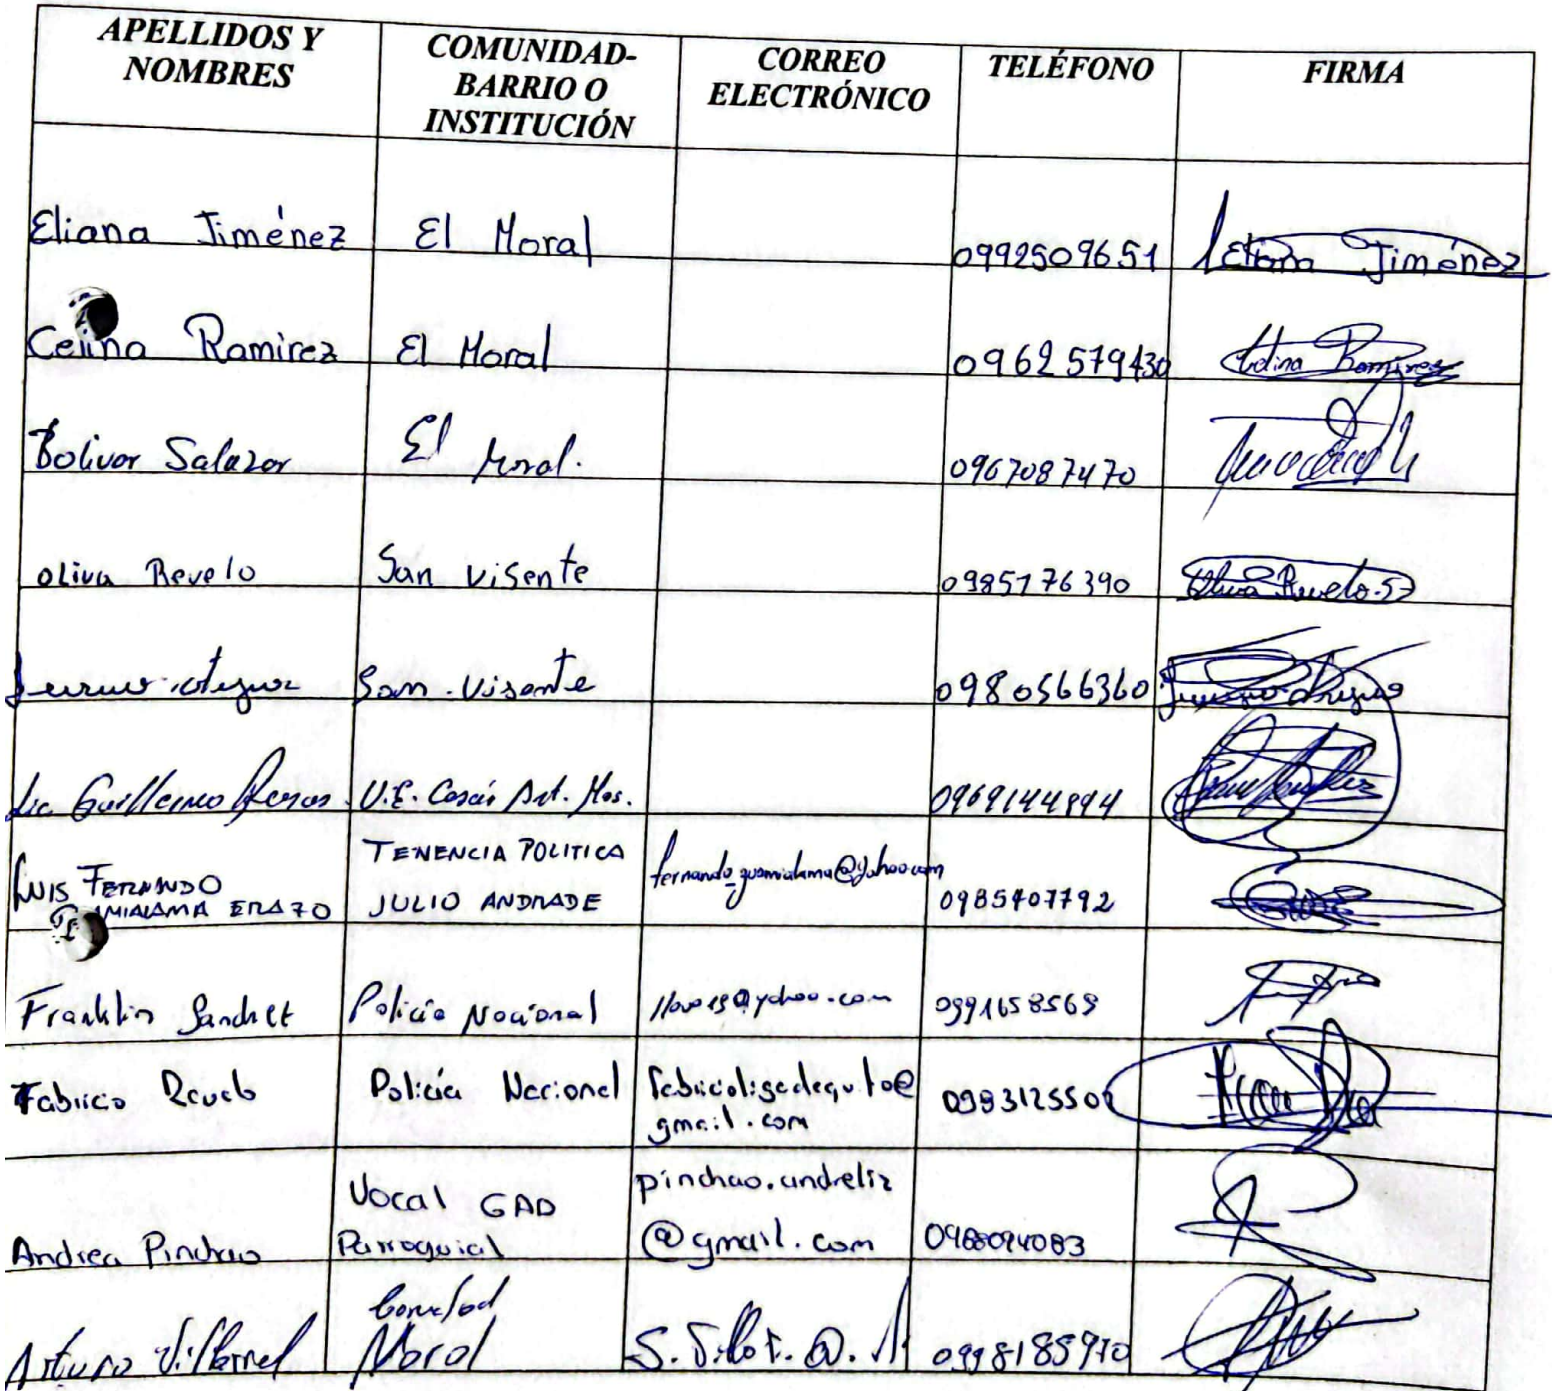 APELLIDOS Y NOMBRES COMUNIDAD-BARRIO O INSTITUCIÓN CORREO ELECTRÓNICO TELÉFONO FIRMA
Eliana Jiménez El Moral 0992509651 Eliana Jiménez
Celina Ramirez El Moral 0962579430 Celina Ramirez
Bolivar Salazar El Moral. 0967087470
oliva Revelo San Visente 0985176390 Oliva Revelo
San Visente 0980566360
Lic Guillermo Rosas U.E. Ant. Mos. 0969144894
LUIS FERNANDO ERAZO TENENCIA POLITICA JULIO ANDRADE fernando_guamialama@yahoo.com 0985407792
Franklin Sanchez Policía Nacional 0991658569
Fabricio Revelo Policía Nacional fabricioligadequito@gmail.com
Andrea Pinchao Vocal GAD Parroquial pinchao.andreliz@gmail.com 0988094083
Arturo Villarreal Moral